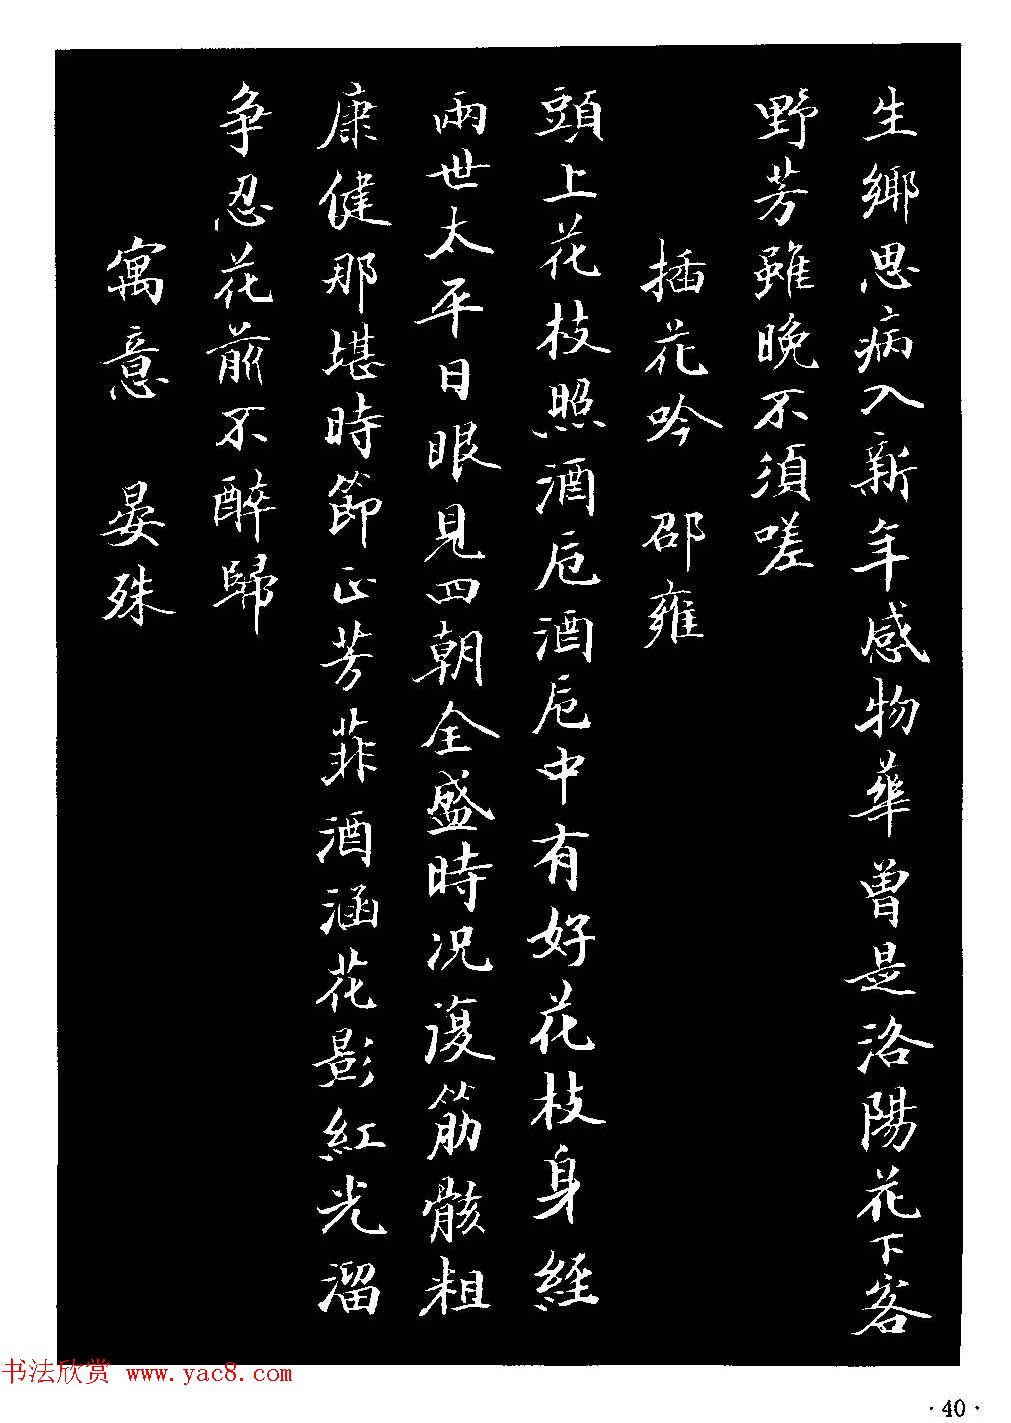 生鄉思病入新年感物華曾是洛陽花下客
野芳雖晚不須嗟
插花吟 邵雍
頭上花枝照酒卮酒卮中有好花枝身經
兩世太平日眼見四朝全盛時况復筋骸粗
康健那堪時節正芳菲酒涵花影紅光溜
争忍花前不醉歸
寓意 晏殊
书法欣赏 www.yac8.com
·40·